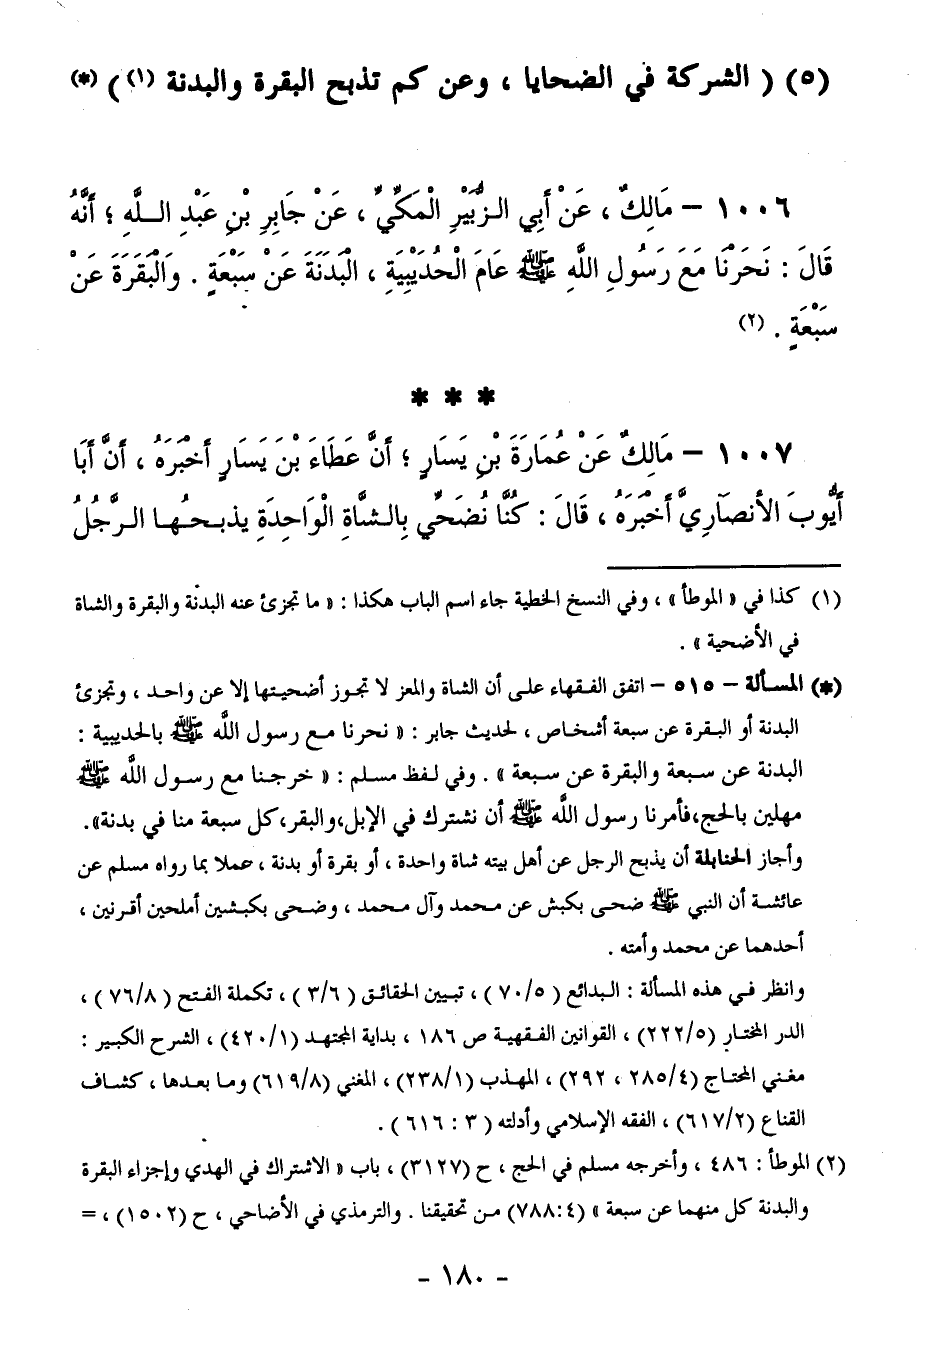 (٥) ( الشركة في الضحايا ، وعن كم تذبح البقرة والبدنة (١) ) (*)
١٠٠٦ – مَالِكٌ ، عَنْ أَبِي الزُّبَيْرِ الْمَكِّيِّ ، عَنْ جَابِرِ بْنِ عَبْدِ اللَّهِ ؛ أَنَّهُ
قَالَ : نَحَرْنَا مَعَ رَسُولِ اللَّهِ ﷺ عَامَ الْحُدَيْبِيَةِ ، الْبَدَنَةَ عَنْ سَبْعَةٍ . وَالْبَقَرَةَ عَنْ
سَبْعَةٍ . (٢)
* * *
١٠٠٧ – مَالِكٌ عَنْ عُمَارَةَ بْنِ يَسَارٍ ؛ أَنَّ عَطَاءَ بْنَ يَسَارٍ أَخْبَرَهُ ، أَنَّ أَبَا
أَيُّوبَ الأَنصَارِيَّ أَخْبَرَهُ ، قَالَ : كُنَّا نُضَحِّي بِالشَّاةِ الْوَاحِدَةِ يذبحُها الرَّجُلُ
(١) كذا في « الموطأ » ، وفي النسخ الخطية جاء اسم الباب هكذا : « ما تجزئ عنه البدنة والبقرة والشاة
في الأضحية » .
(*) المسألة – ٥١٥ – اتفق الفقهاء على أن الشاة والمعز لا تجوز أضحيتها إلا عن واحد ، وتجزئ
البدنة أو البقرة عن سبعة أشخاص ، لحديث جابر : « نحرنا مع رسول اللَّه ﷺ بالحديبية :
البدنة عن سبعة والبقرة عن سبعة » . وفي لفظ مسلم : « خرجنا مع رسول اللَّه ﷺ
مهلين بالحج،فأمرنا رسول اللَّه ﷺ أن نشترك في الإبل،والبقر،كل سبعة منا في بدنة».
وأجاز الحنابلة أن يذبح الرجل عن أهل بيته شاة واحدة ، أو بقرة أو بدنة ، عملا بما رواه مسلم عن
عائشة أن النبي ﷺ ضحى بكبش عن محمد وآل محمد ، وضحى بكبشين أملحين أقرنين ،
أحدهما عن محمد وأمته .
وانظر في هذه المسألة : البدائع ( ٧٠/٥ ) ، تبيين الحقائق ( ٣/٦ ) ، تكملة الفتح ( ٧٦/٨ ) ،
الدر المختار (٢٢٢/٥) ، القوانين الفقهية ص ١٨٦ ، بداية المجتهد (٤٢٠/١) ، الشرح الكبير :
مغني المحتاج (٢٨٥/٤ ، ٢٩٢) ، المهذب (٢٣٨/١) ، المغني (٦١٩/٨) وما بعدها ، كشاف
القناع (٦١٧/٢) ، الفقه الإسلامي وأدلته ( ٣ : ٦١٦ ) .
(٢) الموطأ : ٤٨٦ ، وأخرجه مسلم في الحج ، ح (٣١٢٧) ، باب « الاشتراك في الهدي وإجزاء البقرة
والبدنة كل منهما عن سبعة » (٧٨٨:٤) من تحقيقنا . والترمذي في الأضاحي ، ح (١٥٠٢) ، =
– ١٨٠ –